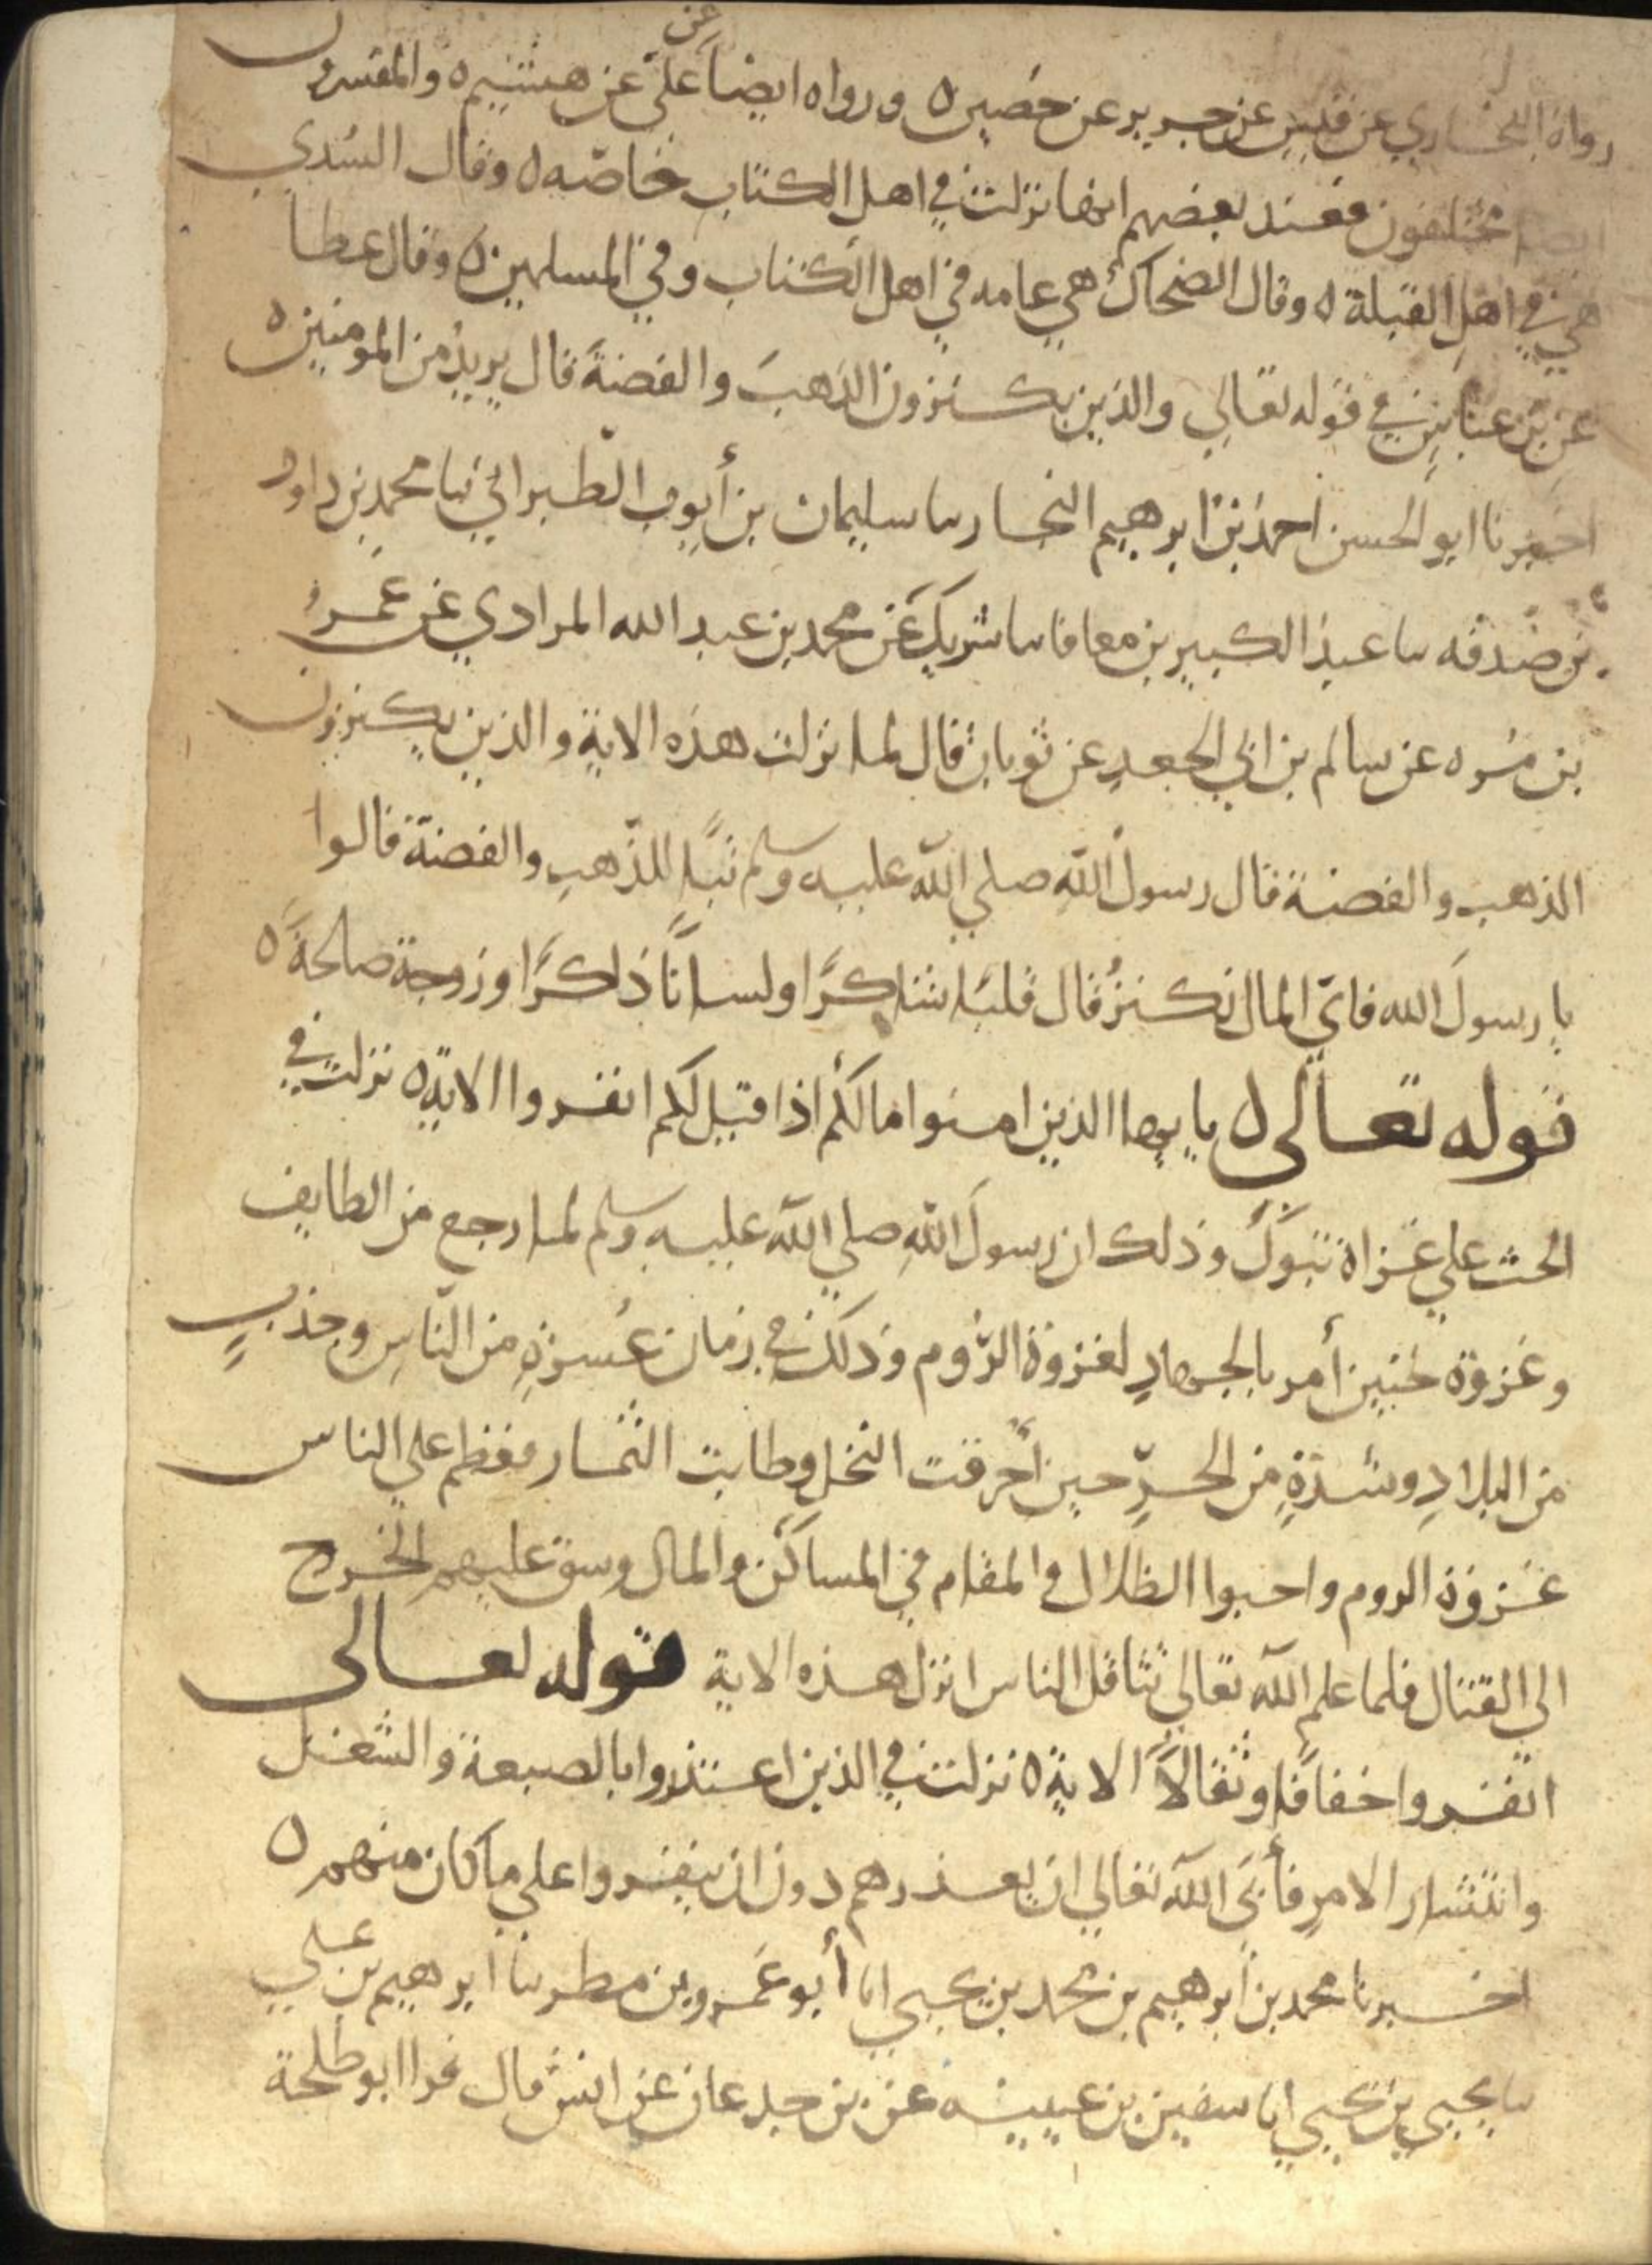 رواه البخاري عن قتيبه عن جرير عن حصين ٥ ورواه ايضا عن علي عن هشيم ٥ والمفسرون
ايضا مختلفون فعند بعضهم انها نزلت في اهل الكتاب خاصّه ٥ وقال السُدي
هي في اهل القبلة ٥ وقال الضحاك هي عامه في اهل الكتاب وفي المسلمين ٥ وقال عطا
عن بن عباس في قوله تعالي والذين يكنزون الذهبَ والفضةَ قال يريد من المومنين ٥
اخبرنا ابو الحسن احمد بن ابرهيم النجار سا سليمان بن أيوب الطبراني نبا محمد بن داود
بن صدقه سا عبد الكبير بن معافا سا شريك عن محمد بن عبد الله المرادي عن عَمرُو
بن مُره عن سالم بن ابي الجعد عن ثوبان قال لما نزلت هذه الاية والذين يكنزون
الذهب والفضة قال رسول الله صلي الله عليه وسلم تبًا للذّهبِ والفضة قالوا
يا رسولَ الله فايّ المال نكنزُ قال قلبًا شاكرًا ولسانًا ذاكرًا وزوجة صالحةً ٥
قوله تعالى ٥ يايها الذين امنوا مالكم اذا قيل لكم انفروا الاية ٥ نزلت في
الحث علي غزاة تبوكَ وذلك ان رسولَ اللهِ صلي الله عليه وسلم لما رجع من الطايف
وغزوة حنين أمر بالجهادِ لغزوة الرُوم وذلك في زمان عُسرةٍ من الناسِ وجذبٍ
من البلادِ وشدّةٍ من الحرّ حين أحرقت النخل وطابت الثمار فعظم علي الناس
غزوة الروم واحبوا الظلال والمقام في المساكن والمال وسق عليهم الخروج
الي القتال فلما علم الله تعالي تثاقل الناس انزل هذه الاية قوله تعالى
انفروا خفافا وثقالاً الاية ٥ نزلت في الذين اعتذروا بالصيعة والشغل
وانتشار الامرِ فأبَى الله تعالي ان يعذرهم دون ان ينفروا علي ما كان منهم ٥
اخبرنا محمد بن ابرهيم بن محمد بن يحيي ابا أبو عَمرو بن مطر سا ابرهيم بن علي
سا يحيي بن يحيي ابا سفين بن عيينه عن بن جدعان عن انس قال قرا ابو طلحة